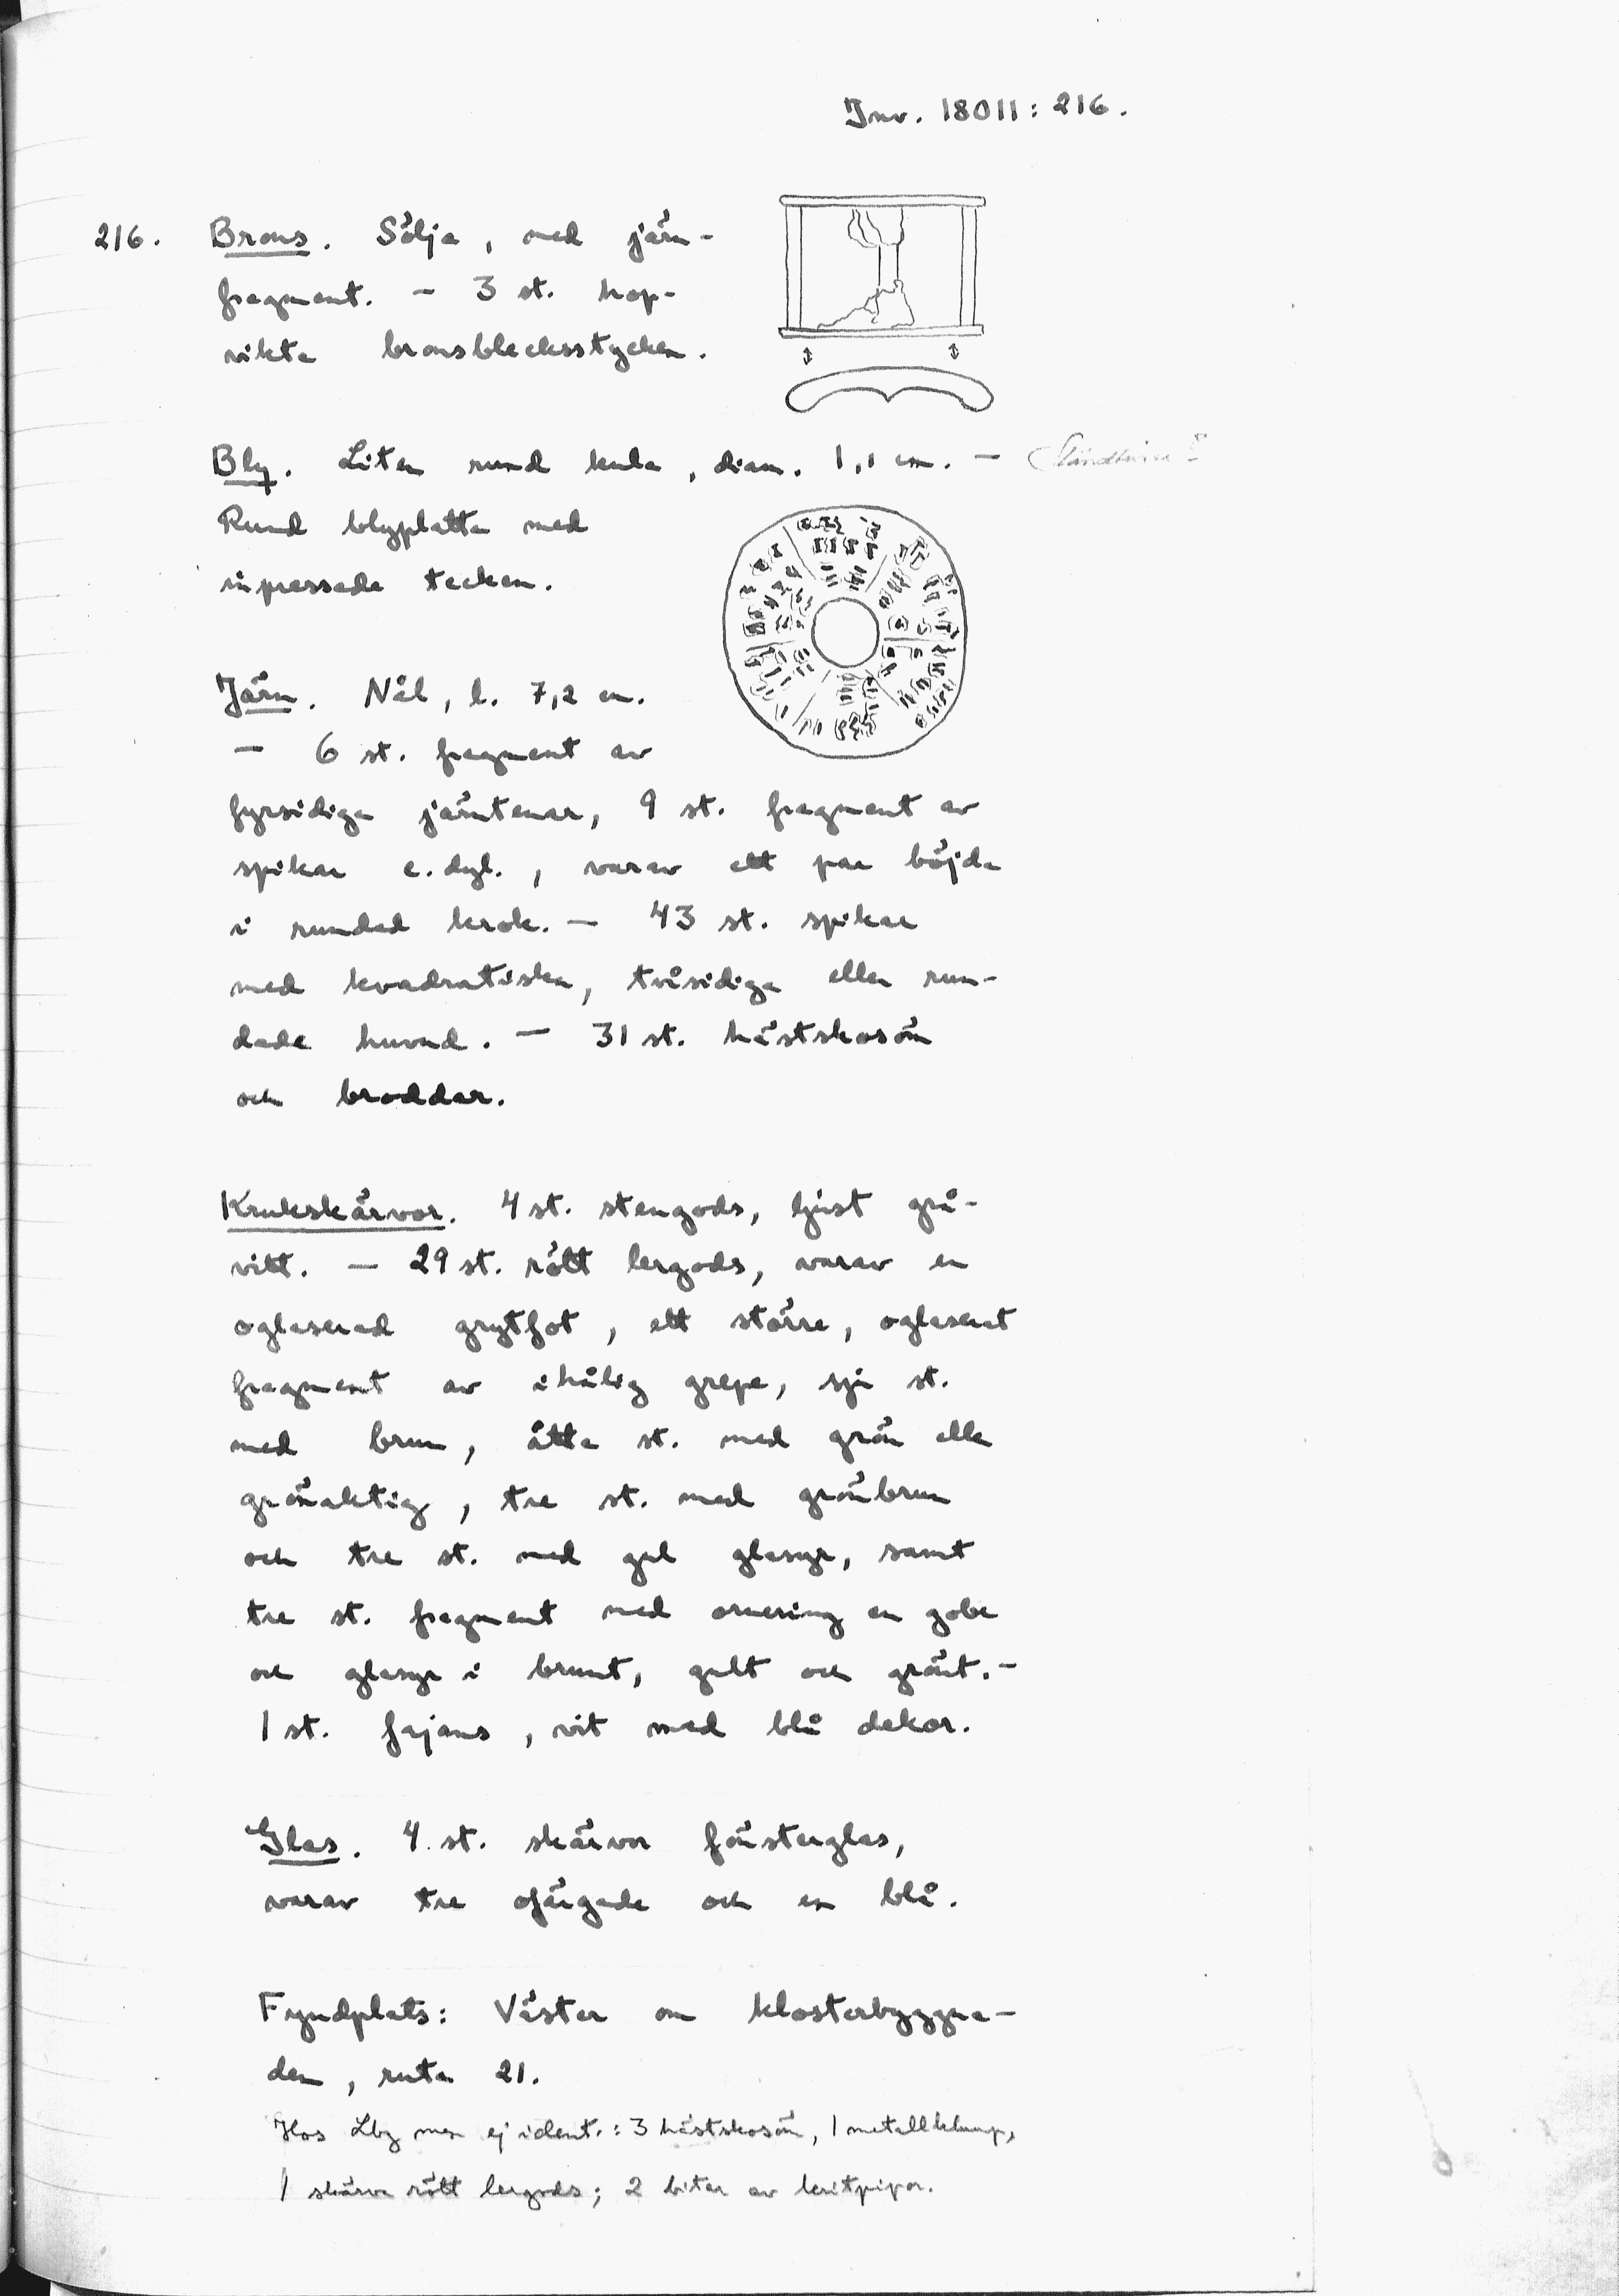 Inv. 18011: 216.
216. Brons. Sölja, med järn-
fragment. - 3 st. hop-
vikta bronsbleckstycken.
Bly. Liten rund kula, diam. 1,1 cm. -
Rund blyplatta med
inpressade tecken.
Järn. Nål, l. 7,2 cm.
- 6 st. fragment av
fyrsidiga järntenar, 9 st. fragment av
spikar e. dyl., varav ett par böjda
i rundad krok. - 43 st. spikar
med kvadratiska, tvåsidiga eller run-
dade huvud. - 31 st. hästskosöm
och broddar.
Krukskärvor. 4 st. stengods, ljust grå-
vitt. - 29 st. rött lergods, varav en
oglaserad grytfot, ett större, oglaserat
fragment av ihålig grepe, sju st.
med brun, åtta st. med grön eller
grönaktig, tre st. med grönbrun
och tre st. med gul glasyr, samt
tre st. fragment med ornering en gobe
och glasyr i brunt, gult och grönt. -
1 st. fajans, vit med blå dekor.
Glas. 4 st. skärvor fönsterglas,
varav tre ofärgade och en blå.
Fyndplats: Väster om klosterbyggna-
den, ruta 21.
Hos Lbg men ej ident.: 3 hästskosöm, 1 metallklump,
1 skärva rött lergods; 2 bitar av kritpipor.